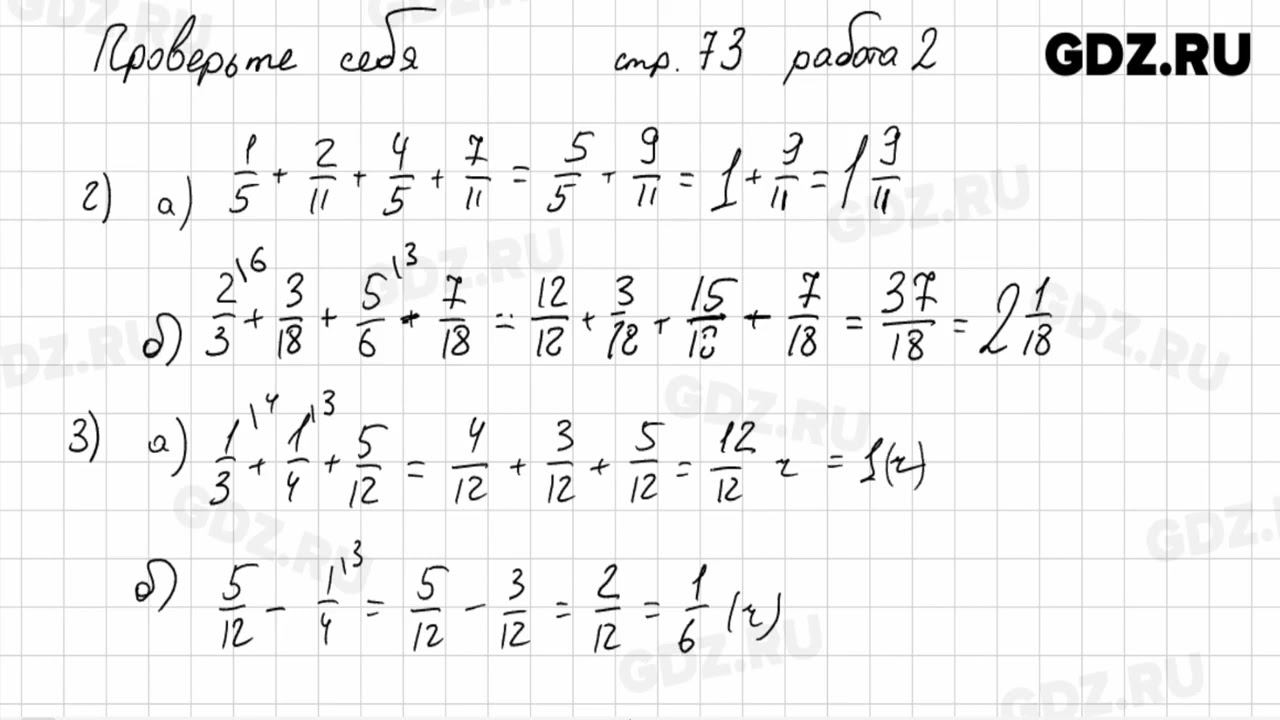 Проверьте себя стр. 73 работа 2 GDZ.RU
2) а) 1/5 + 2/11 + 4/5 + 7/11 = 5/5 + 9/11 = 1 + 9/11 = 1 9/11
б) 2/3\6 + 3/18 + 5/6\3 + 7/18 = 12/12 + 3/18 + 15/18 + 7/18 = 37/18 = 2 1/18
3) а) 1/3\4 + 1/4\3 + 5/12 = 4/12 + 3/12 + 5/12 = 12/12 ч = 1 (ч)
б) 5/12 - 1/4\3 = 5/12 - 3/12 = 2/12 = 1/6 (ч)